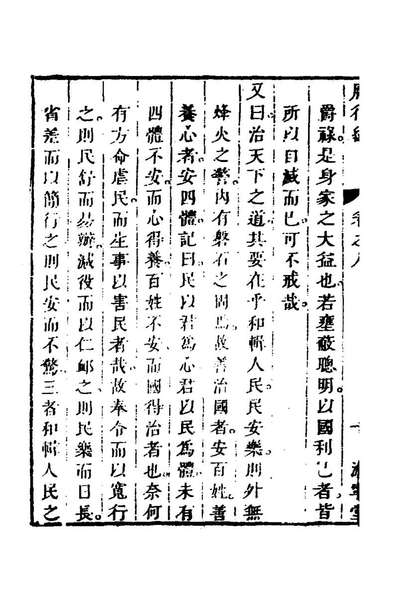 爵祿是身家之大益也若壅蔽聰明以國利己者皆
所以自滅而已可不戒哉
又曰治天下之道其要在乎和輯人民民安樂則外無
烽火之警內有磐石之固爲故善治國者安百姓善
養心者安四體記曰民以君爲心君以民爲體未有
四體不安而心得養百姓不安而國得治者也奈何
有方命虐民而生事以害民者哉故奉令而以寬行
之則民舒而易辦減役而以仁卹之則民樂而日長
省差而以簡行之則民安而不驚三者和輯人民之